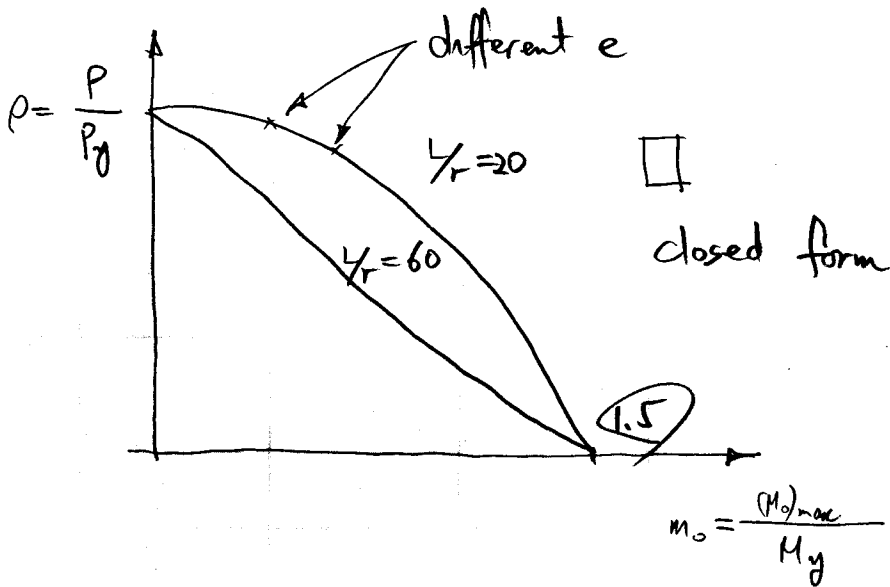 different e
ρ = P / Py
L/r = 20
closed form
L/r = 60
1.5
m₀ = (M₀)max / My